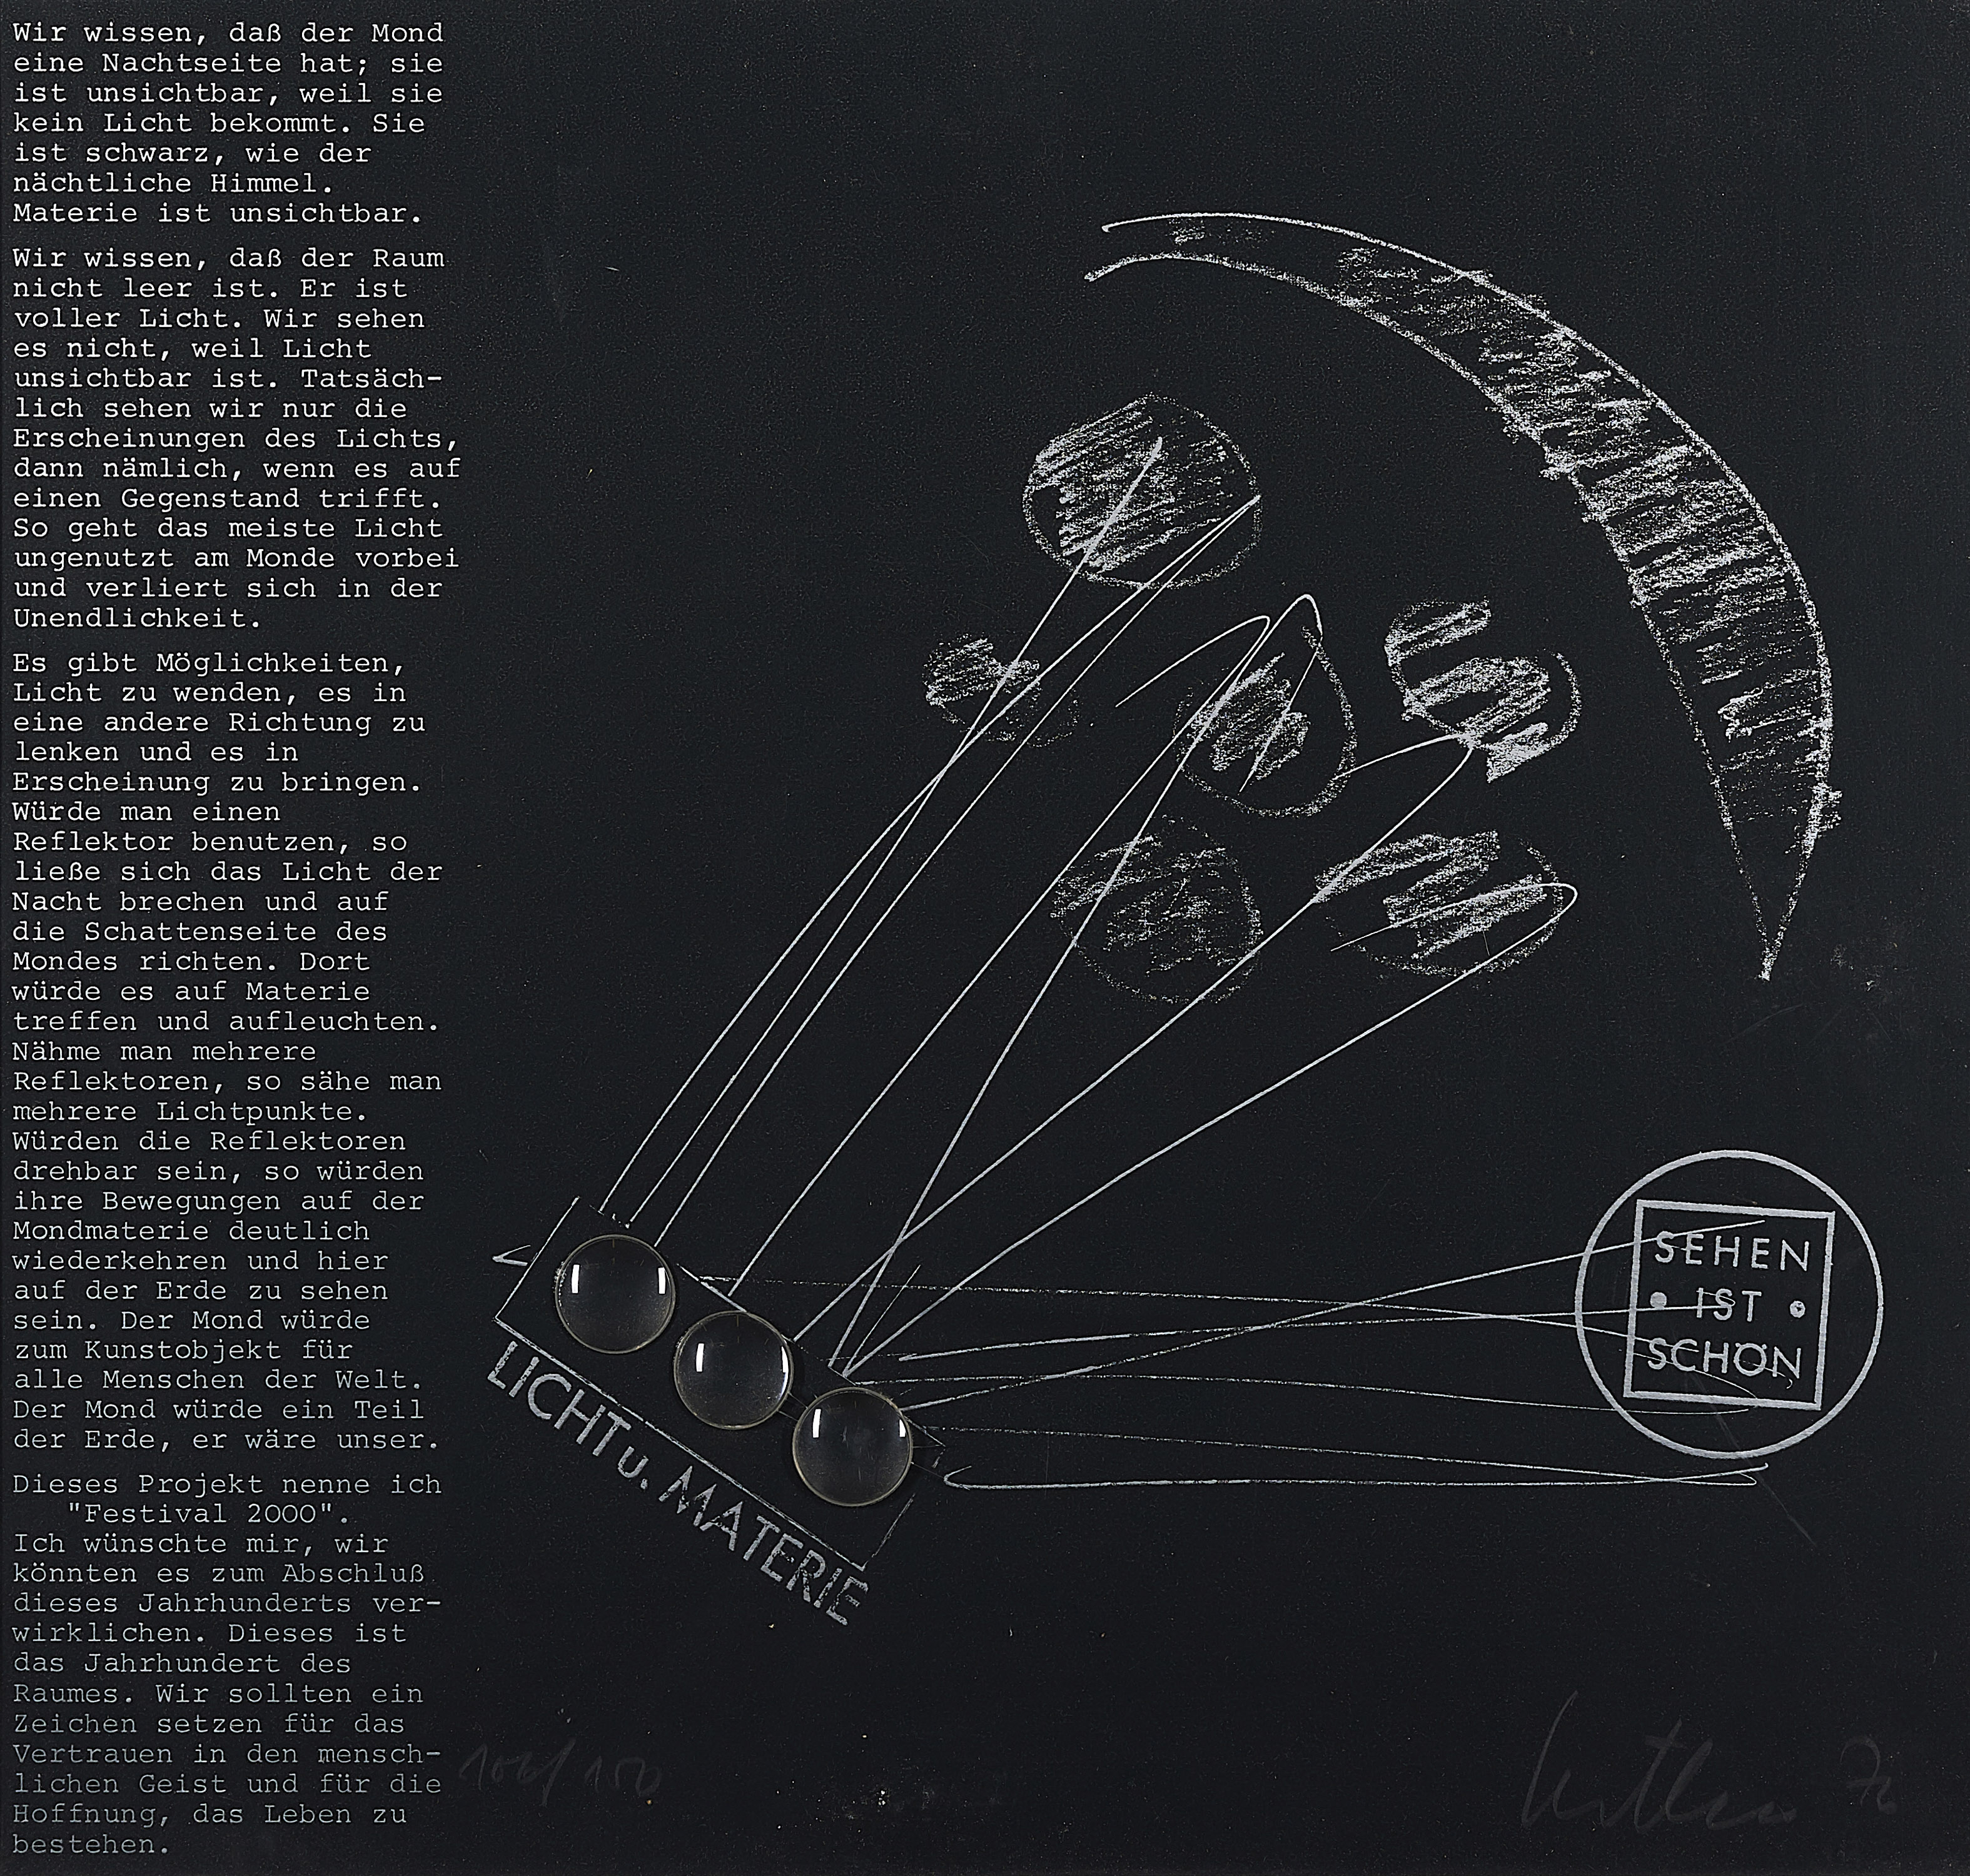 Wir wissen, daß der Mond
eine Nachtseite hat; sie
ist unsichtbar, weil sie
kein Licht bekommt. Sie
ist schwarz, wie der
nächtliche Himmel.
Materie ist unsichtbar.
Wir wissen, daß der Raum
nicht leer ist. Er ist
voller Licht. Wir sehen
es nicht, weil Licht
unsichtbar ist. Tatsäch-
lich sehen wir nur die
Erscheinungen des Lichts,
dann nämlich, wenn es auf
einen Gegenstand trifft.
So geht das meiste Licht
ungenutzt am Monde vorbei
und verliert sich in der
Unendlichkeit.
Es gibt Möglichkeiten,
Licht zu wenden, es in
eine andere Richtung zu
lenken und es in
Erscheinung zu bringen.
Würde man einen
Reflektor benutzen, so
ließe sich das Licht der
Nacht brechen und auf
die Schattenseite des
Mondes richten. Dort
würde es auf Materie
treffen und aufleuchten.
Nähme man mehrere
Reflektoren, so sähe man
mehrere Lichtpunkte.
Würden die Reflektoren
drehbar sein, so würden
ihre Bewegungen auf der
Mondmaterie deutlich
wiederkehren und hier
auf der Erde zu sehen
sein. Der Mond würde
zum Kunstobjekt für
alle Menschen der Welt.
Der Mond würde ein Teil
der Erde, er wäre unser.
Dieses Projekt nenne ich
"Festival 2000".
Ich wünschte mir, wir
könnten es zum Abschluß
dieses Jahrhunderts ver-
wirklichen. Dieses ist
das Jahrhundert des
Raumes. Wir sollten ein
Zeichen setzen für das
Vertrauen in den mensch-
lichen Geist und für die
Hoffnung, das Leben zu
bestehen.
LICHT u. MATERIE
SEHEN
• IST •
SCHÖN